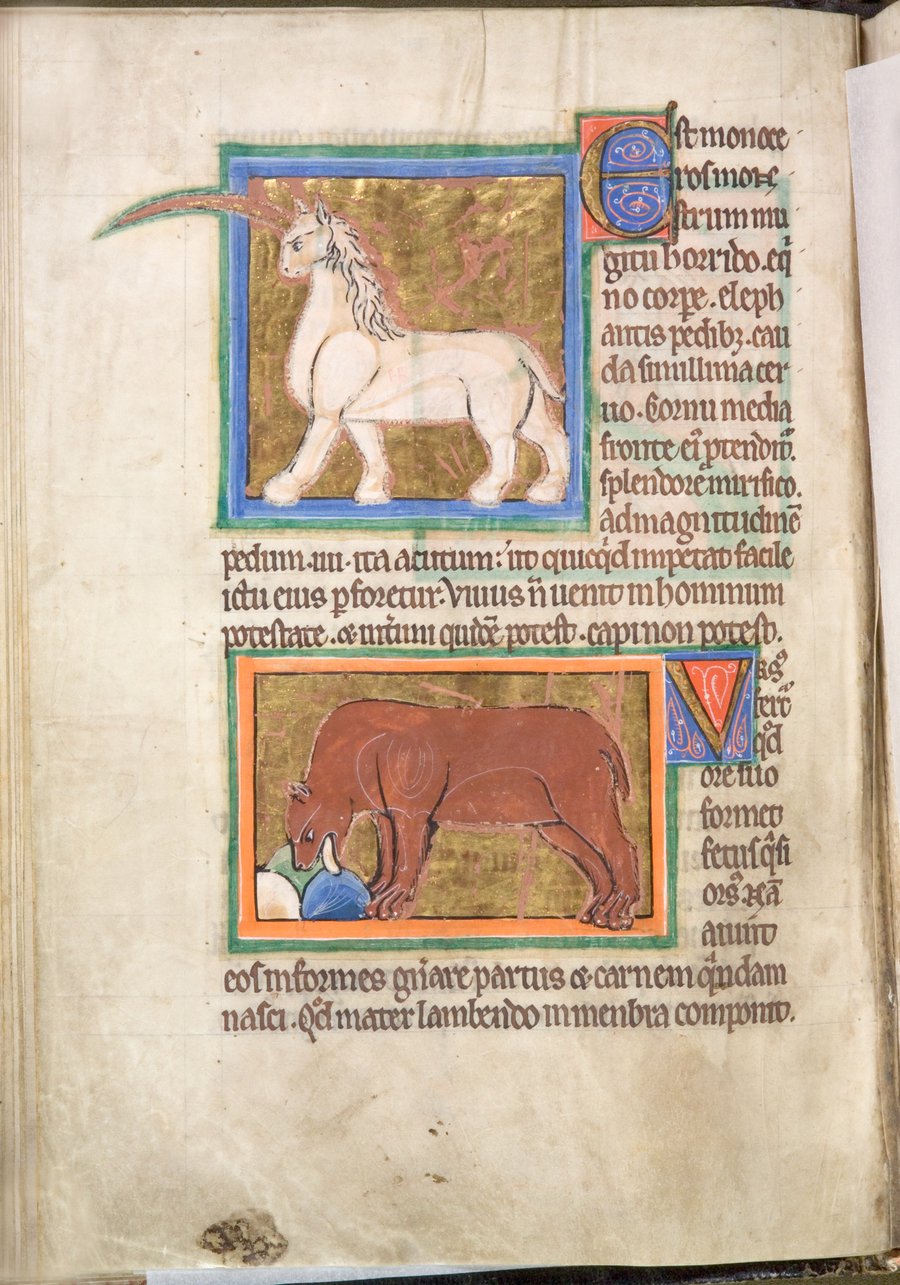 Est monoce
ros mon
strum mu
gitu horrido. eq̄
no corpe. eleph
antis pedibꝫ. cau
da simillima cer
uo. Cornu media
fronte eı̾ ꝑtendit᷑.
splendore mirifico.
ad magnitudinē
pedum .iiii. ita acutum: ut quicq̇d impetat facile
ictu eius ꝑforetur. Viuus n̄ uenit in hominum
potestatē. & int̾imi quidē potest. capi non potest.
Vrsꝰ
fert᷑
qͦd
ore suo
formet
fetus qͣsi
orsꝰ. Nā
aiunt
eos informes gn̄are partus & carnem qͣndam
nasci. Qͦd mater lambendo in menbra componit.